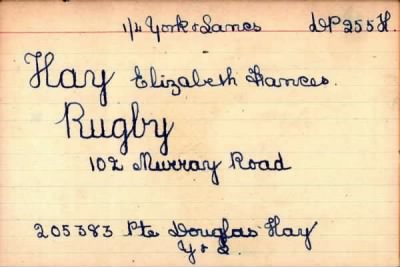 1/4 York & Lancs DP 255 H.
Hay Elizabeth Frances.
Rugby
102 Murray Road
205383 Pte Douglas Hay
Y & L.